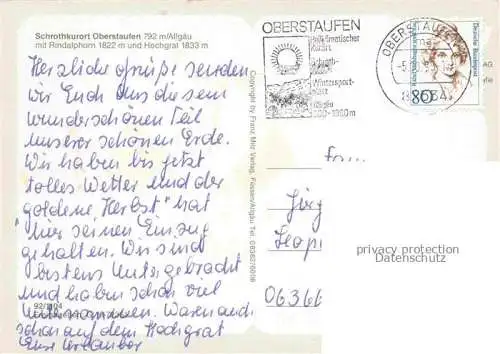 Schrothkurort Oberstaufen 792 m/Allgäu
mit Rindalphorn 1822 m und Hochgrat 1833 m
Herzliche Grüße senden
wir Euch aus diesem
wunderschönen Teil
unserer schönen Erde.
Wir haben bis jetzt
tolles Wetter und der
"goldene Herbst" hat
hier seinen Einzug
gehalten. Wir sind
bestens untergebracht
und haben schon viel
unternommen. Waren auch
schon auf dem Hochgrat
Eure Urlauber
Copyright by Franz Milz Verlag, Füssen/Allgäu Tel.
OBERSTAUFEN
Heilklimatischer
Kurort
Schroth-
kurort
Wintersport-
platz
Allgäu
OBERSTAUFEN
80
Deutsche Bundespost
Jürg
Leop
06366
privacy protection
Datenschutz